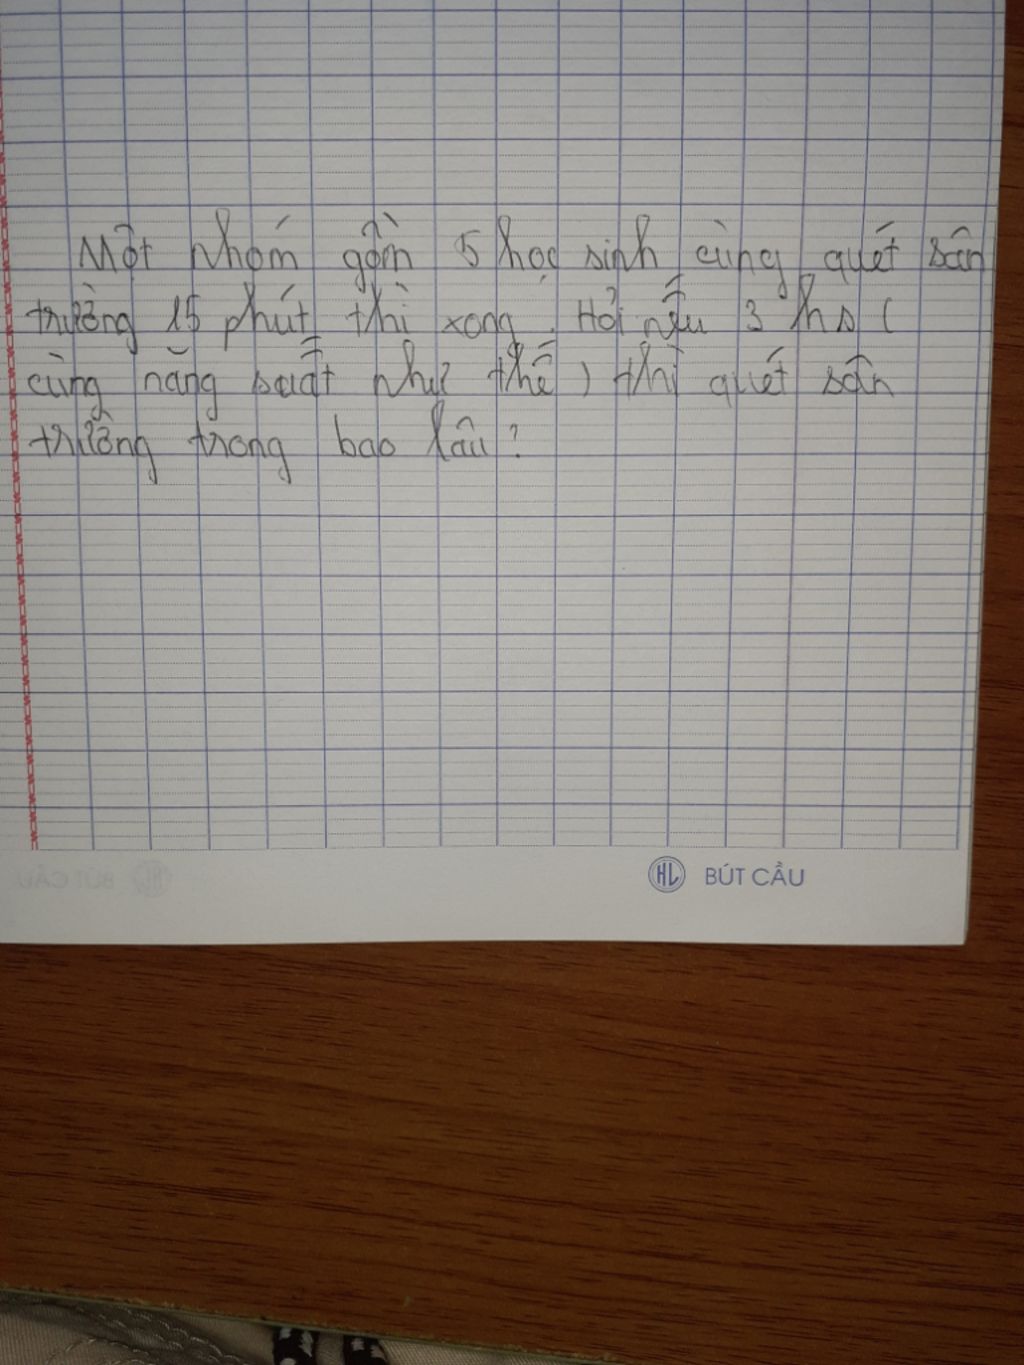 Một nhóm gồm 5 học sinh cùng quét sân
trường 15 phút thì xong. Hỏi nếu 3 hs (
cùng năng suất như thế) thì quét sân
trường trong bao lâu?
HL BÚT CẦU